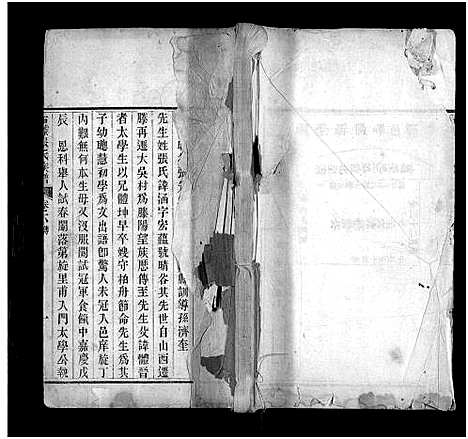 訓導孫濟奎
先生姓張氏諱涵字宏蘊號晴谷其先世自山西遷
滕再遷大吳村爲滕陽望族歷傳至先生父諱體晉
者太學生以兄體坤早卒嫂守柏舟節命先生爲其
子幼聰慧初學爲文出語卽驚人未冠入邑庠旋丁
內艱無何本生母又沒服闋試冠軍食餼中嘉慶戊
辰 恩科舉人試春闈落第旋里甫入門太學公執
張氏
一